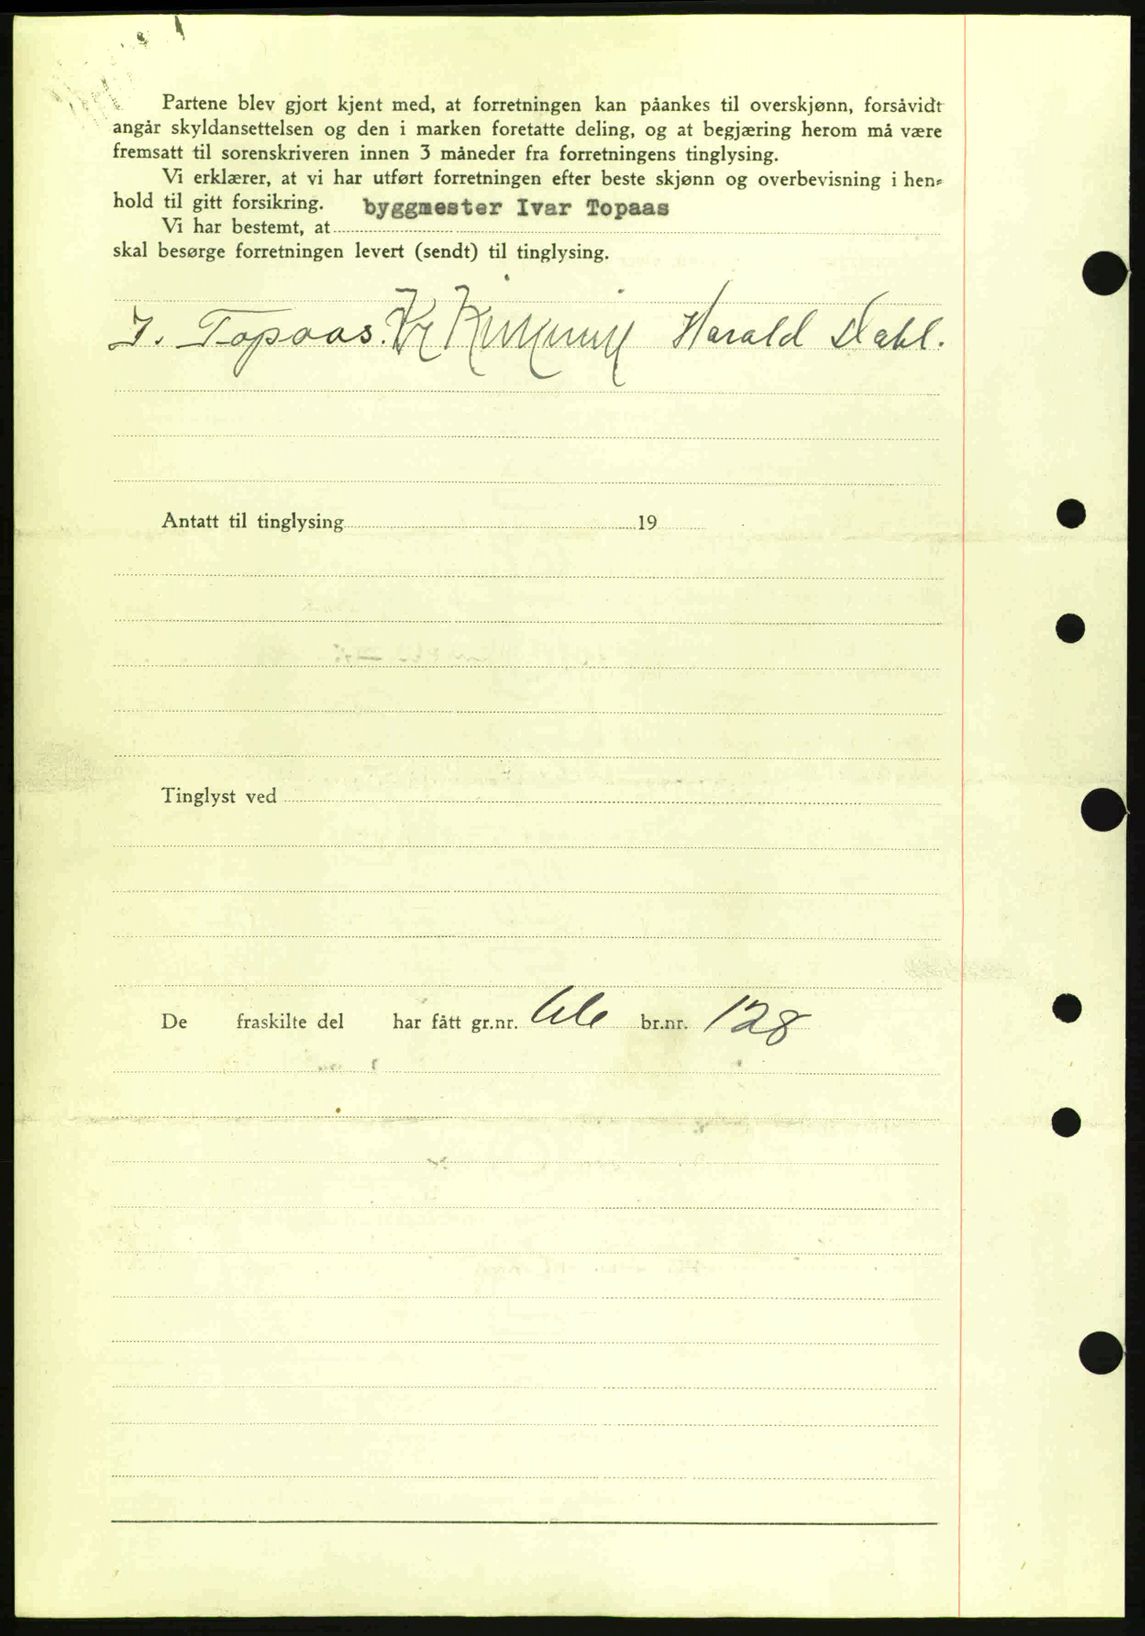 Partene blev gjort kjent med, at forretningen kan påankes til overskjønn, forsåvidt
angår skyldansettelsen og den i marken foretatte deling, og at begjæring herom må være
fremsatt til sorenskriveren innen 3 måneder fra forretningens tinglysing.
Vi erklærer, at vi har utført forretningen efter beste skjønn og overbevisning i hen-
hold til gitt forsikring.
Vi har bestemt, at byggmester Ivar Topaas
skal besørge forretningen levert (sendt) til tinglysing.
I. Topaas. Kr Harald Dahl.
Antatt til tinglysing 19
Tinglyst ved
De fraskilte del har fått gr.nr. br.nr. 128